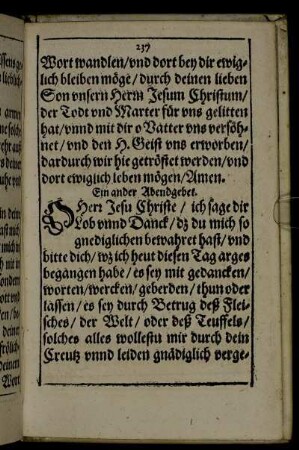 237
Wort wandlen/vnd dort bey dir ewig-
lich bleiben möge/durch deinen lieben
Son vnsern Herrn Jesum Christum/
der Todt vnd Marter für vns gelitten
hat/vnnd mit dir o Vatter vns versöh-
net/vnd den H. Geist vns erworben/
dardurch wir hie getröstet werden/vnd
dort ewiglich leben mögen/Amen.
Ein ander Abendgebet.
O Herr Jesu Christe/ich sage dir
Lob vnnd Danck/dz du mich so
gnediglichen bewahret hast/vnd
bitte dich/wz ich heut diesen Tag arges
begangen habe/es sey mit gedancken/
worten/wercken/geberden/thun oder
lassen/es sey durch Betrug deß Flei-
sches/der Welt/oder deß Teuffels/
solches alles wollestu mir durch dein
Creutz vnnd leiden gnädiglich verge-
Wort